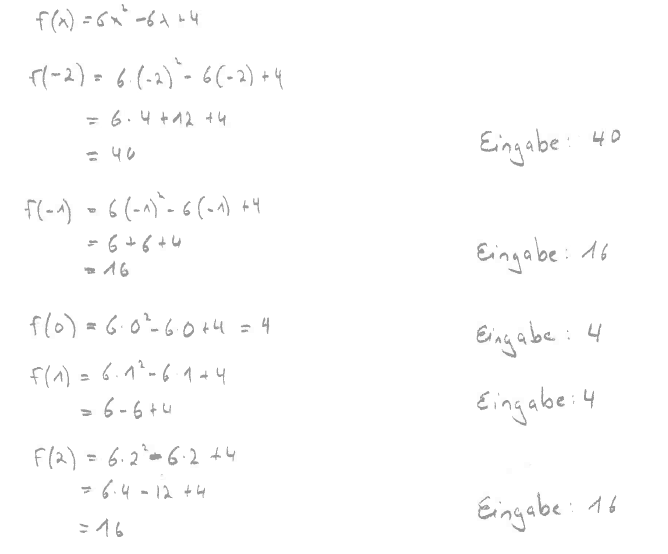 f(x) = 6x² - 6x + 4
f(-2) = 6·(-2)² - 6(-2) + 4
= 6·4 + 12 + 4
= 40
Eingabe: 40
f(-1) = 6(-1)² - 6(-1) + 4
= 6 + 6 + 4
= 16
Eingabe: 16
f(0) = 6·0² - 6·0 + 4 = 4
Eingabe: 4
f(1) = 6·1² - 6·1 + 4
= 6 - 6 + 4
Eingabe: 4
f(2) = 6·2² - 6·2 + 4
= 6·4 - 12 + 4
= 16
Eingabe: 16